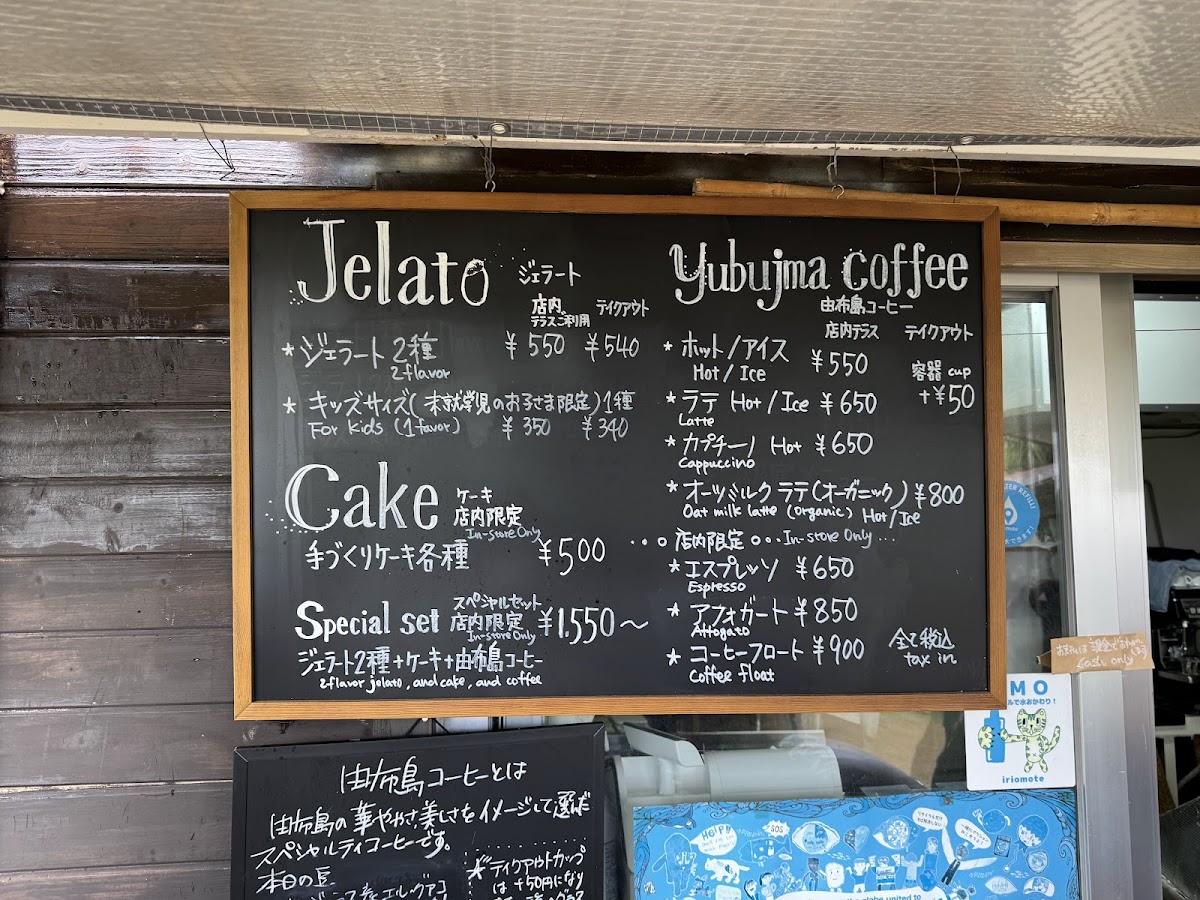 Jelato ジェラート
店内、テラスご利用 テイクアウト
* ジェラート2種 ¥550 ¥540
2flavor
* キッズサイズ(未就学児のお子さま限定)1種
For kids (1 favor) ¥350 ¥340
Cake ケーキ
店内限定
In-store Only
手づくりケーキ各種 ¥500
Special set スペシャルセット
店内限定 ¥1,550〜
In-store Only
ジェラート2種+ケーキ+由布島コーヒー
2flavor jelato, and cake, and coffee
Yubujma coffee
由布島コーヒー
店内テラス テイクアウト
* ホット/アイス ¥550
Hot/Ice
容器 cup
+¥50
* ラテ Hot/Ice ¥650
Latte
* カプチーノ Hot ¥650
Cappuccino
* オーツミルク ラテ(オーガニック) ¥800
Oat milk latte (organic) Hot/Ice
店内限定 In-store Only
* エスプレッソ ¥650
Espresso
* アフォガート ¥850
Affogato
* コーヒーフロート ¥900
Coffee float
全て税込
tax in
Cash only
で水おかわり!
iriomote
由布島コーヒーとは
由布島の華やかさ、美しさをイメージして選ば
スペシャルティコーヒーです。
本日の豆
*テイクアウトカップ
は+50円になり
HELP!!
SOS